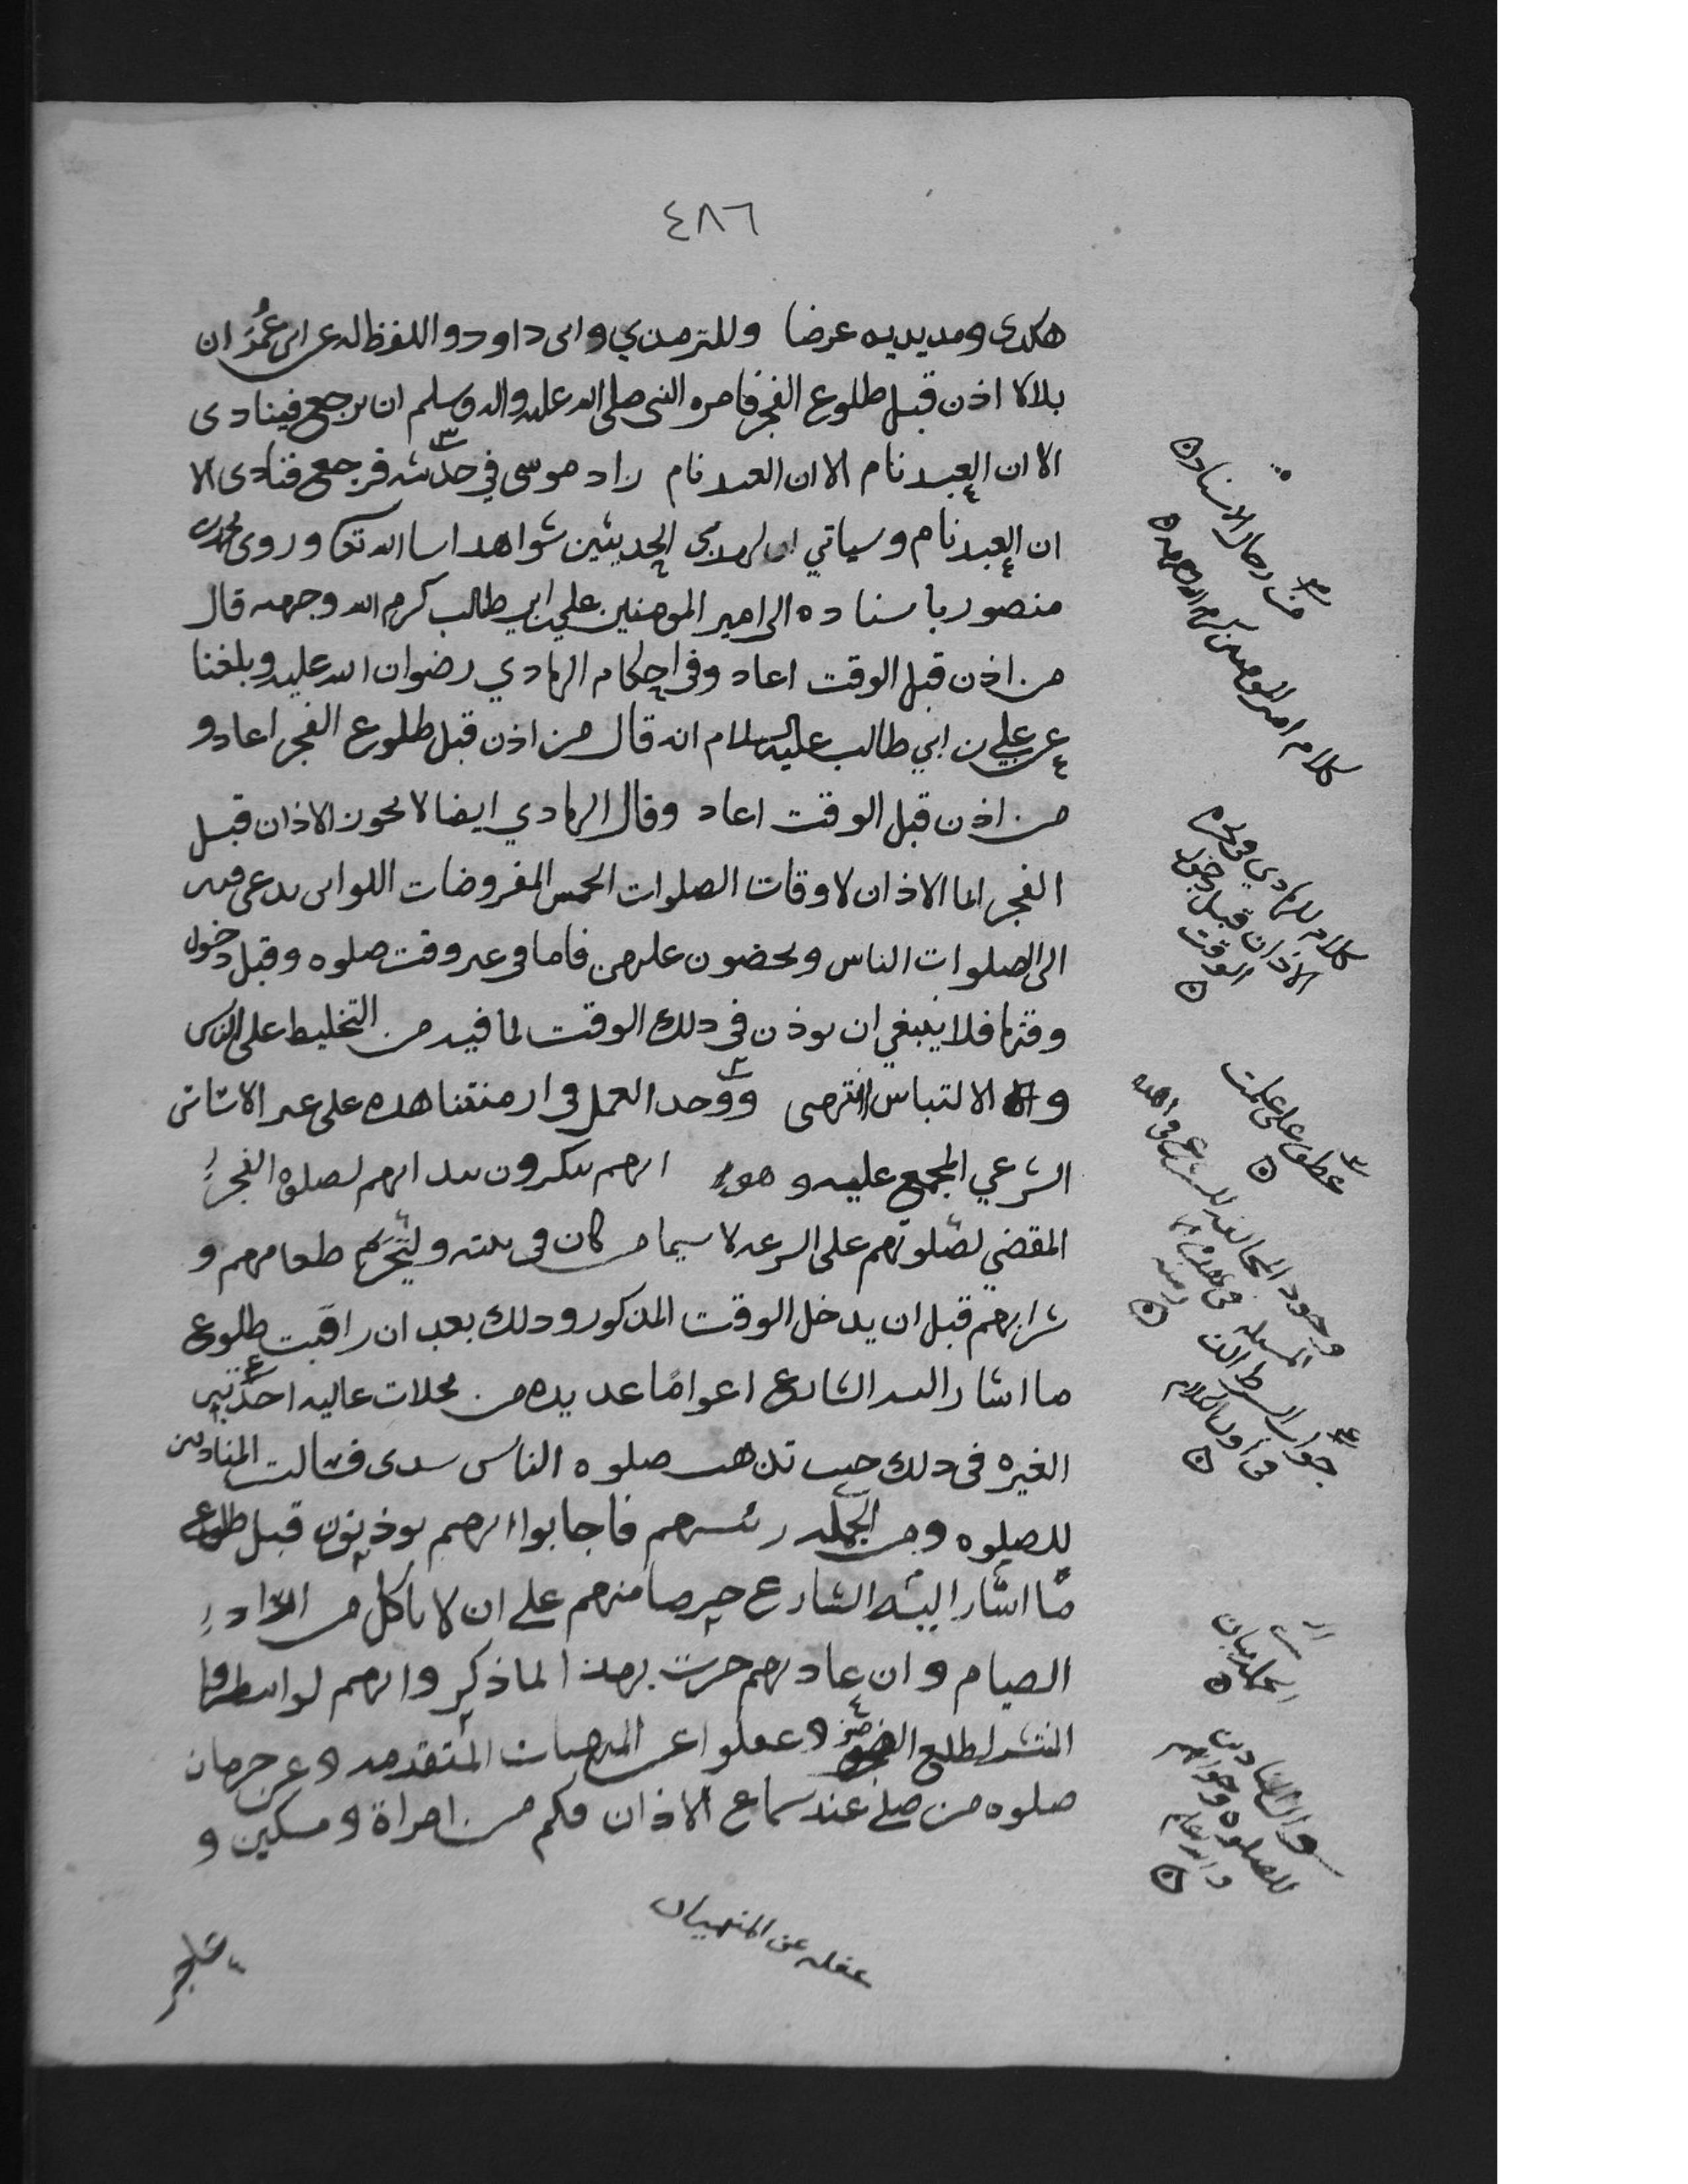 ٤٨٦
هكدى ومد يديه عرضا وللترمدي وابى داود واللفظ له عن ابن عمر ان
بلالا اذن قبل طلوع الفجر فامره النبى صلى الله عليه واله وسلم ان يرجع فينادى
الا ان العبد نام الا ان العبد نام زاد موسى في حديثه فرجع فنادى الا
ان العبد نام وسياتي الحديثين شواهد انسا الله تعا وروى محمد بن
منصور باسناده الى امير المومنين علي بن ابي طالب كرم الله وجهه قال
من اذن قبل الوقت اعاد وفي احكام الهادي رضوان الله عليه وبلغنا
عن علي بن ابي طالب عليه السلام انه قال من اذن قبل طلوع الفجر اعاد و
من اذن قبل الوقت اعاد وقال الهادي ايضا لا يجوز الاذان قبل
الفجر انما الاذان لاوقات الصلوات الخمس المفروضات اللواتى يدعى فيهن
الى الصلوات الناس ويحضون عليهن فاما فى غير وقت صلوه وقبل دخول
وقتها فلا ينبغي ان يوذن في دلك الوقت لما فيه من التخليط على الناس
و الالتباس انتهى ووجد العمل فى ازمنتنا هده على غير الاساس
الشرعي المجمع عليه وهو انهم يبكرون بندايهم لصلوة الفجر
المقضي لصلوتهم على السرعه لا سيما من كان فى بيته ولتحريم طعامهم و
شرابهم قبل ان يدخل الوقت المدكور ودلك بعد ان راقبت طلوع
ما اشار اليه الشارع اعواما عديده من محلات عاليه اخدتنى
الغيره فى دلك حيث تدهب صلوه الناس سدى فسالت المنادين
للصلوه ومن الجمله رئيسهم فاجابوا انهم يوذنون قبل طلوع
ما اشار اليه الشارع حرصا منهم على ان لا ياكل من اراد
الصيام وان عادتهم جرت بهدا لما ذكر وانهم لو انتظروا
المنتشر لطلع الضو وغفلوا عن المنهيات المتقدمه وعن حرمان
صلوه من صلى عند سماع الاذان فكم من امراة ومسكين و
من رجال الاسناد
كلام امير المومنين كرم الله وجهه
كلام للهادي فى تحريم
الاذان قبل دخول
الوقت
عطف على علمت
وجود المخالفه للشرع فى هده
جواب الشرط
من اول الكلام
وسال المنادين
للصلوه وجوابهم
والله اعلم
غفله عن المنهيات